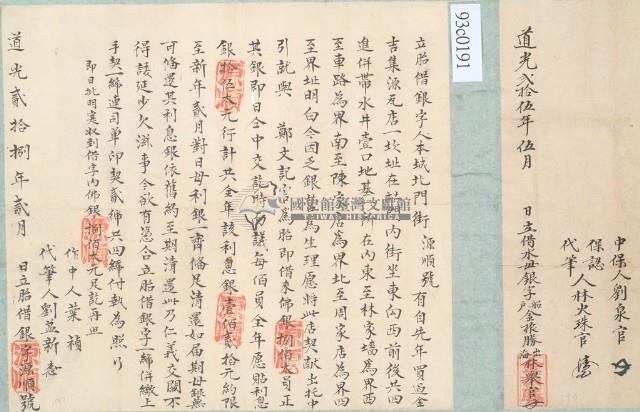 93c0191
道光貳拾伍年伍月
日立借水毌銀字船戶金根勝
出海林翠官
中保人劉泉官
保認人林火珠官
代筆
立胎借銀字人本城北門街源順號有自先年買過金
吉集源瓦店一坎址在北門內街坐東向西前後共四
進併帶水井壹口地基 所在內東至林家墻為界西
至車路為界南至陳家店為界北至周家店為界四
至界址明白今因乏銀營為生理愿將此店契献出托中
引就與 鄭文記 為胎即借來佛銀捌佰大員正
其銀即日仝中交訖時 議每佰員全年愿貼利息
銀拾伍大元行計共全年該利息銀壹佰貳拾元約限
至新年貳月對日毌利銀一齊備足清還如屆期毌銀無
可備還其利息銀依舊約至期清還此乃仁義交關不
得諉延少欠滋事今欲有憑合立胎借銀字一紙併繳上
手契一紙連司單印契貳紙共四紙付執為照
即日批明實收到借字內佛銀捌佰大元足訖再照
作中人葉禎
代筆人劉益新
道光貳拾捌年貳月 日立胎借銀字源順號
國史館臺灣文獻館
TAIWAN HISTORICA